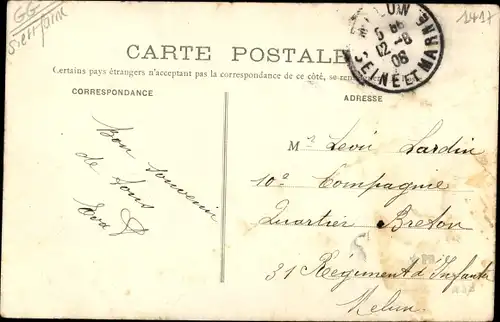 GG
S et marne
1417
MELUN
12-8
08
SEINE ET MARNE
CARTE POSTALE
Certains pays étrangers n'acceptant pas la correspondance de ce côté, se
CORRESPONDANCE
ADRESSE
Bon souvenir
de tous
Eva
Mr Léon Lardin
10e Compagnie
Quartier Breton
31 Régiment d'Infanterie
Melun